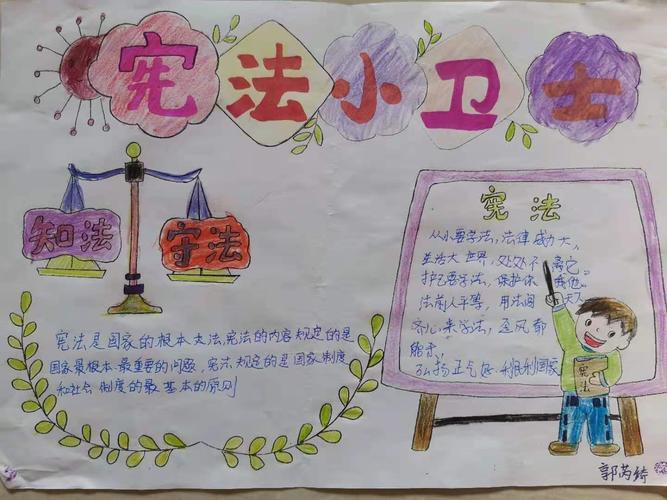 宪法小卫士
知法
守法
宪法是国家的根本大法,宪法的内容规定的是
国家最根本最重要的问题,宪法规定的是国家制度
和社会制度的最基本的原则
宪法
从小要学法,法律威力大,
生活大世界,处处不离它。
护己要学法,保护你我他。
法前人平等,用法闯天下。
齐心来学法,歪风都
弘扬正气
利国家
宪法